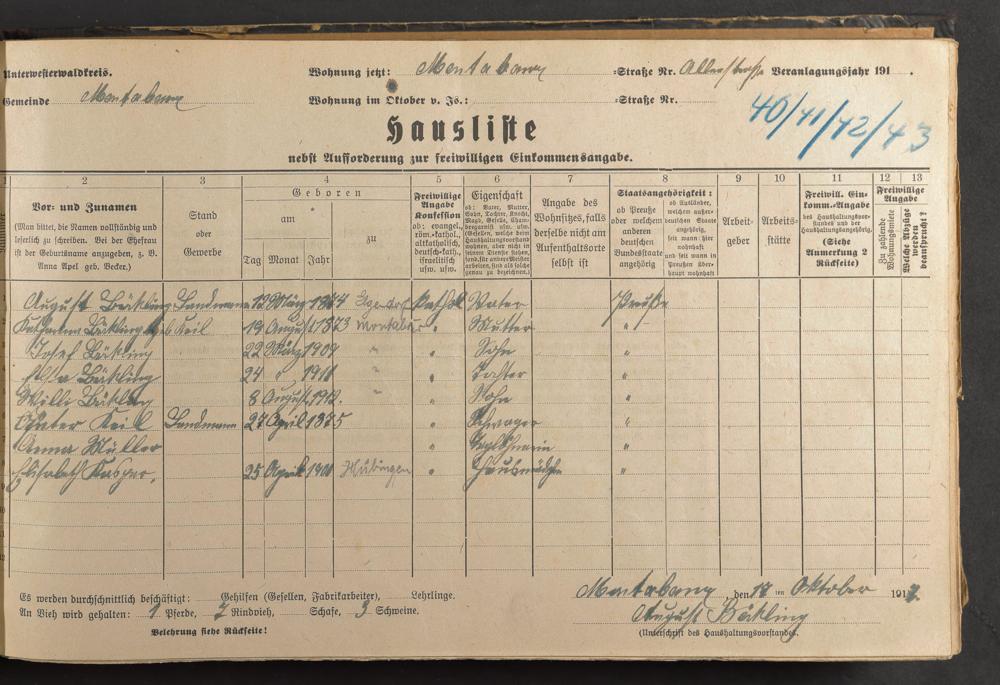 Unterwesterwaldkreis.
Wohnung jetzt: Montabaur =Straße Nr. Veranlagungsjahr 191 .
Gemeinde Montabaur
Wohnung im Oktober v. Js.: =Straße Nr.
40/41/42/43
Hausliste
nebst Aufforderung zur freiwilligen Einkommensangabe.
1 2 3 4 5 6 7 8 9 10 11 12 13
Vor- und Zunamen
(Man bittet, die Namen vollständig und
leserlich zu schreiben. Bei der Ehefrau
ist der Geburtsname anzugeben, z. B.
Anna Apel geb. Becker.)
Stand
oder
Gewerbe
Geboren
am
zu
Tag Monat Jahr
Freiwillige
Angabe
Konfession
ob: evangel.,
röm.-kathol.,
altkatholisch,
deutsch-kath.,
israelitisch
usw. usw.
Eigenschaft
ob: Vater, Mutter,
Sohn, Tochter, Knecht,
Magd, Geselle,
usw. usw.
(Gesellen, welche beim
Haushaltungsvorstand
wohnen, aber nicht in
seinem Dienste stehen,
sind als solche
genau zu bezeichnen.)
Angabe des
Wohnsitzes, falls
derselbe nicht am
Aufenthaltsorte
selbst ist
Staatsangehörigkeit:
ob Preuße
oder welchem
anderen
deutschen
Bundesstaate
angehörig
ob Ausländer,
welchem außer-
deutschen Staat
angehörig,
seit wann hier
wohnhaft
und seit wann in
Preußen über-
haupt wohnhaft
Arbeit-
geber
Arbeits-
stätte
Freiwill. Ein-
komm.-Angabe
des Haushaltungsvor-
standes und der
Haushaltungsangehörig.
(Siehe
Anmerkung 2
Rückseite)
Freiwillige
Angabe
Zu zahlende
Wohnungsmiete
Welche Abzüge
werden
beansprucht?
August Bökling Landmann 12 März 1864 Kathol Vater Preuße
Katharina Bökling geb Keil 19 August 1873 " Mutter "
Josef Bökling 22 März 1909 " " Sohn "
Bökling 24 " 1911 " " Tochter "
Willi Bökling 8 August 1912. " " Sohn "
Keil Landmann 27 April 1875 " Schwager "
Anna Müller " "
Elisabeth Kasper, 25 April Hübingen " Hausmädchen "
Es werden durchschnittlich beschäftigt: Gehilfen (Gesellen, Fabrikarbeiter), Lehrlinge.
An Vieh wird gehalten: 1 Pferde, 7 Rindvieh, Schafe, 3 Schweine.
Belehrung siehe Rückseite!
Montabaur, den ten Oktober 1917.
August Bökling
(Unterschrift des Haushaltungsvorstandes.)